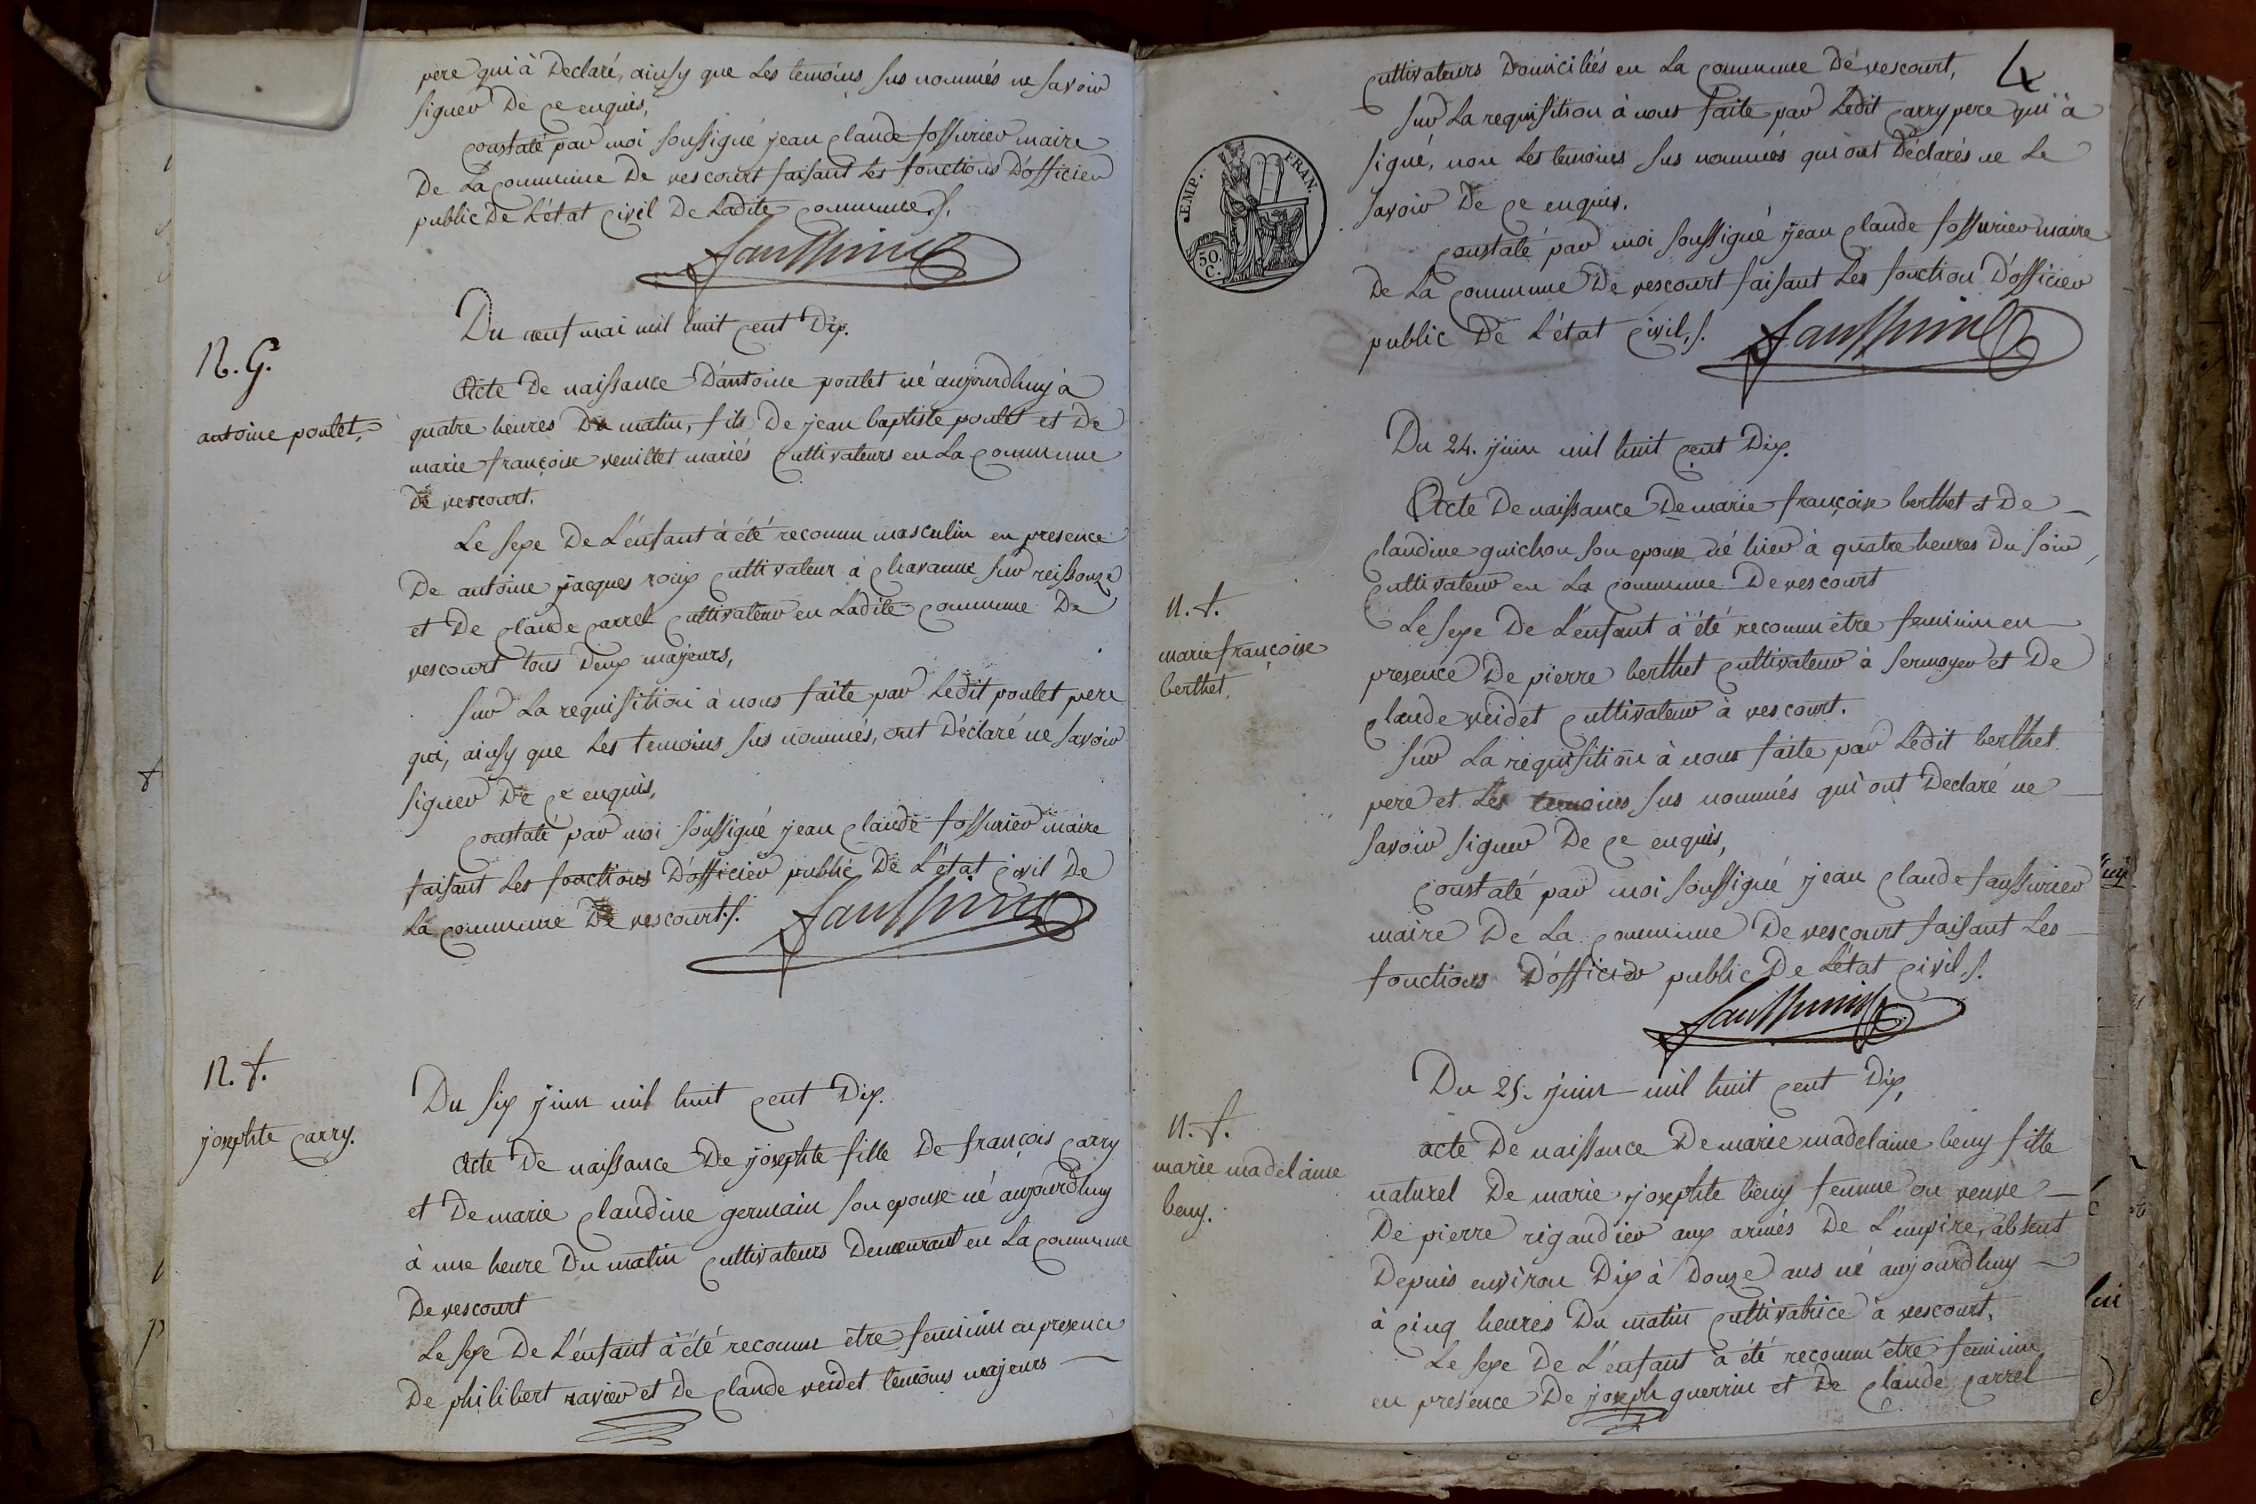 pere qui à Declaré, ainsy que Les temoins sus nommés ne savoir
signer De ce enquis,
constaté par moi soussigné jean claude fossurier maire
De La commune De vescourt faisant Les fonctions D'officier
public De L'état civil De Ladite commune./.
Du neuf mai mil huit cent Dix.
N. G.
antoine poulet,
Acte De naissance D'antoine poulet né aujourdhuy à
quatre heures Du matin, fils De jean baptiste poulet et De
marie françoise veuillet mariés cultivateurs en La commune
De vescourt.
Le sexe De L'énfant à été reconnu masculin en presence
De antoine jacques roux cultivateur à chavanne sur reissouze
et De claude carrel cultivateur en Ladite commune De
vescourt tous Deux majeurs,
sur La requisition à nous faite par Ledit poulet pere
qui, ainsy que Les temoins sus nommés, ont Déclaré ne savoir
signer De ce enquis,
constaté par moi soussigné jean claude fossurier maire
faisant Les fonctions D'officier public De L'état civil De
La commune De vescourt./.
N. f.
josephte carry.
Du six juin mil huit cent Dix.
Acte De naissance De josephte fille De françois carry
et De marie claudine germain son epouse né aujourdhuy
à une heure Du matin cultivateurs Demeurant en La commune
De vescourt
Le sexe De L'énfant à été reconnu etre feminin en presence
De philibert ravier et De claude veidet temoins majeurs
4
cultivateurs Domiciliés en La commune De vescourt,
sur La requisition à nous faite par Ledit carry pere qui à
signé, non Les temoins sus nommés qui ont Déclarés ne Le
savoir De ce enquis.
EMP. FRAN.
50.
C.
constaté par moi soussigné jean claude fossurier maire
De La commune De vescourt faisant Les fonction D'officier
public De L'état civil,/.
Du 24. juin mil huit cent Dix.
Acte De naissance De marie françoise berthet et De
claudine guichon son epouse né hier à quatre heures Du soir,
cultivateur en La commune De vescourt
N. f.
marie françoise
berthet,
Le sexe De L'énfant à été reconnu etre feminin en
presence De pierre berthet cultivateur à sermoyer et De
claude veidet cultivateur à vescourt.
sur La requisition à nous faite par Ledit berthet
pere et Les temoins sus nommés qui ont Declaré ne
savoir signer De ce enquis,
constaté par moi soussigné jean claude faussurier
maire De La commune De vescourt faisant Les
fonctions D'officier public De L'état civil./.
Du 25. juin mil huit cent Dix,
N. f.
marie madelaine
beny.
acte De naissance De marie madelaine beny fille
naturel De marie josephte beny femme ou veuve
De pierre rigaudier aux armés De L'empire, absent
Depuis environ Dix à Douze ans né aujourdhuy
à cinq heures Du matin cultivatrice à vescourt,
Le sexe De L'énfant à été reconnu etre feminin
en presence De joseph guerrin et De claude carrel